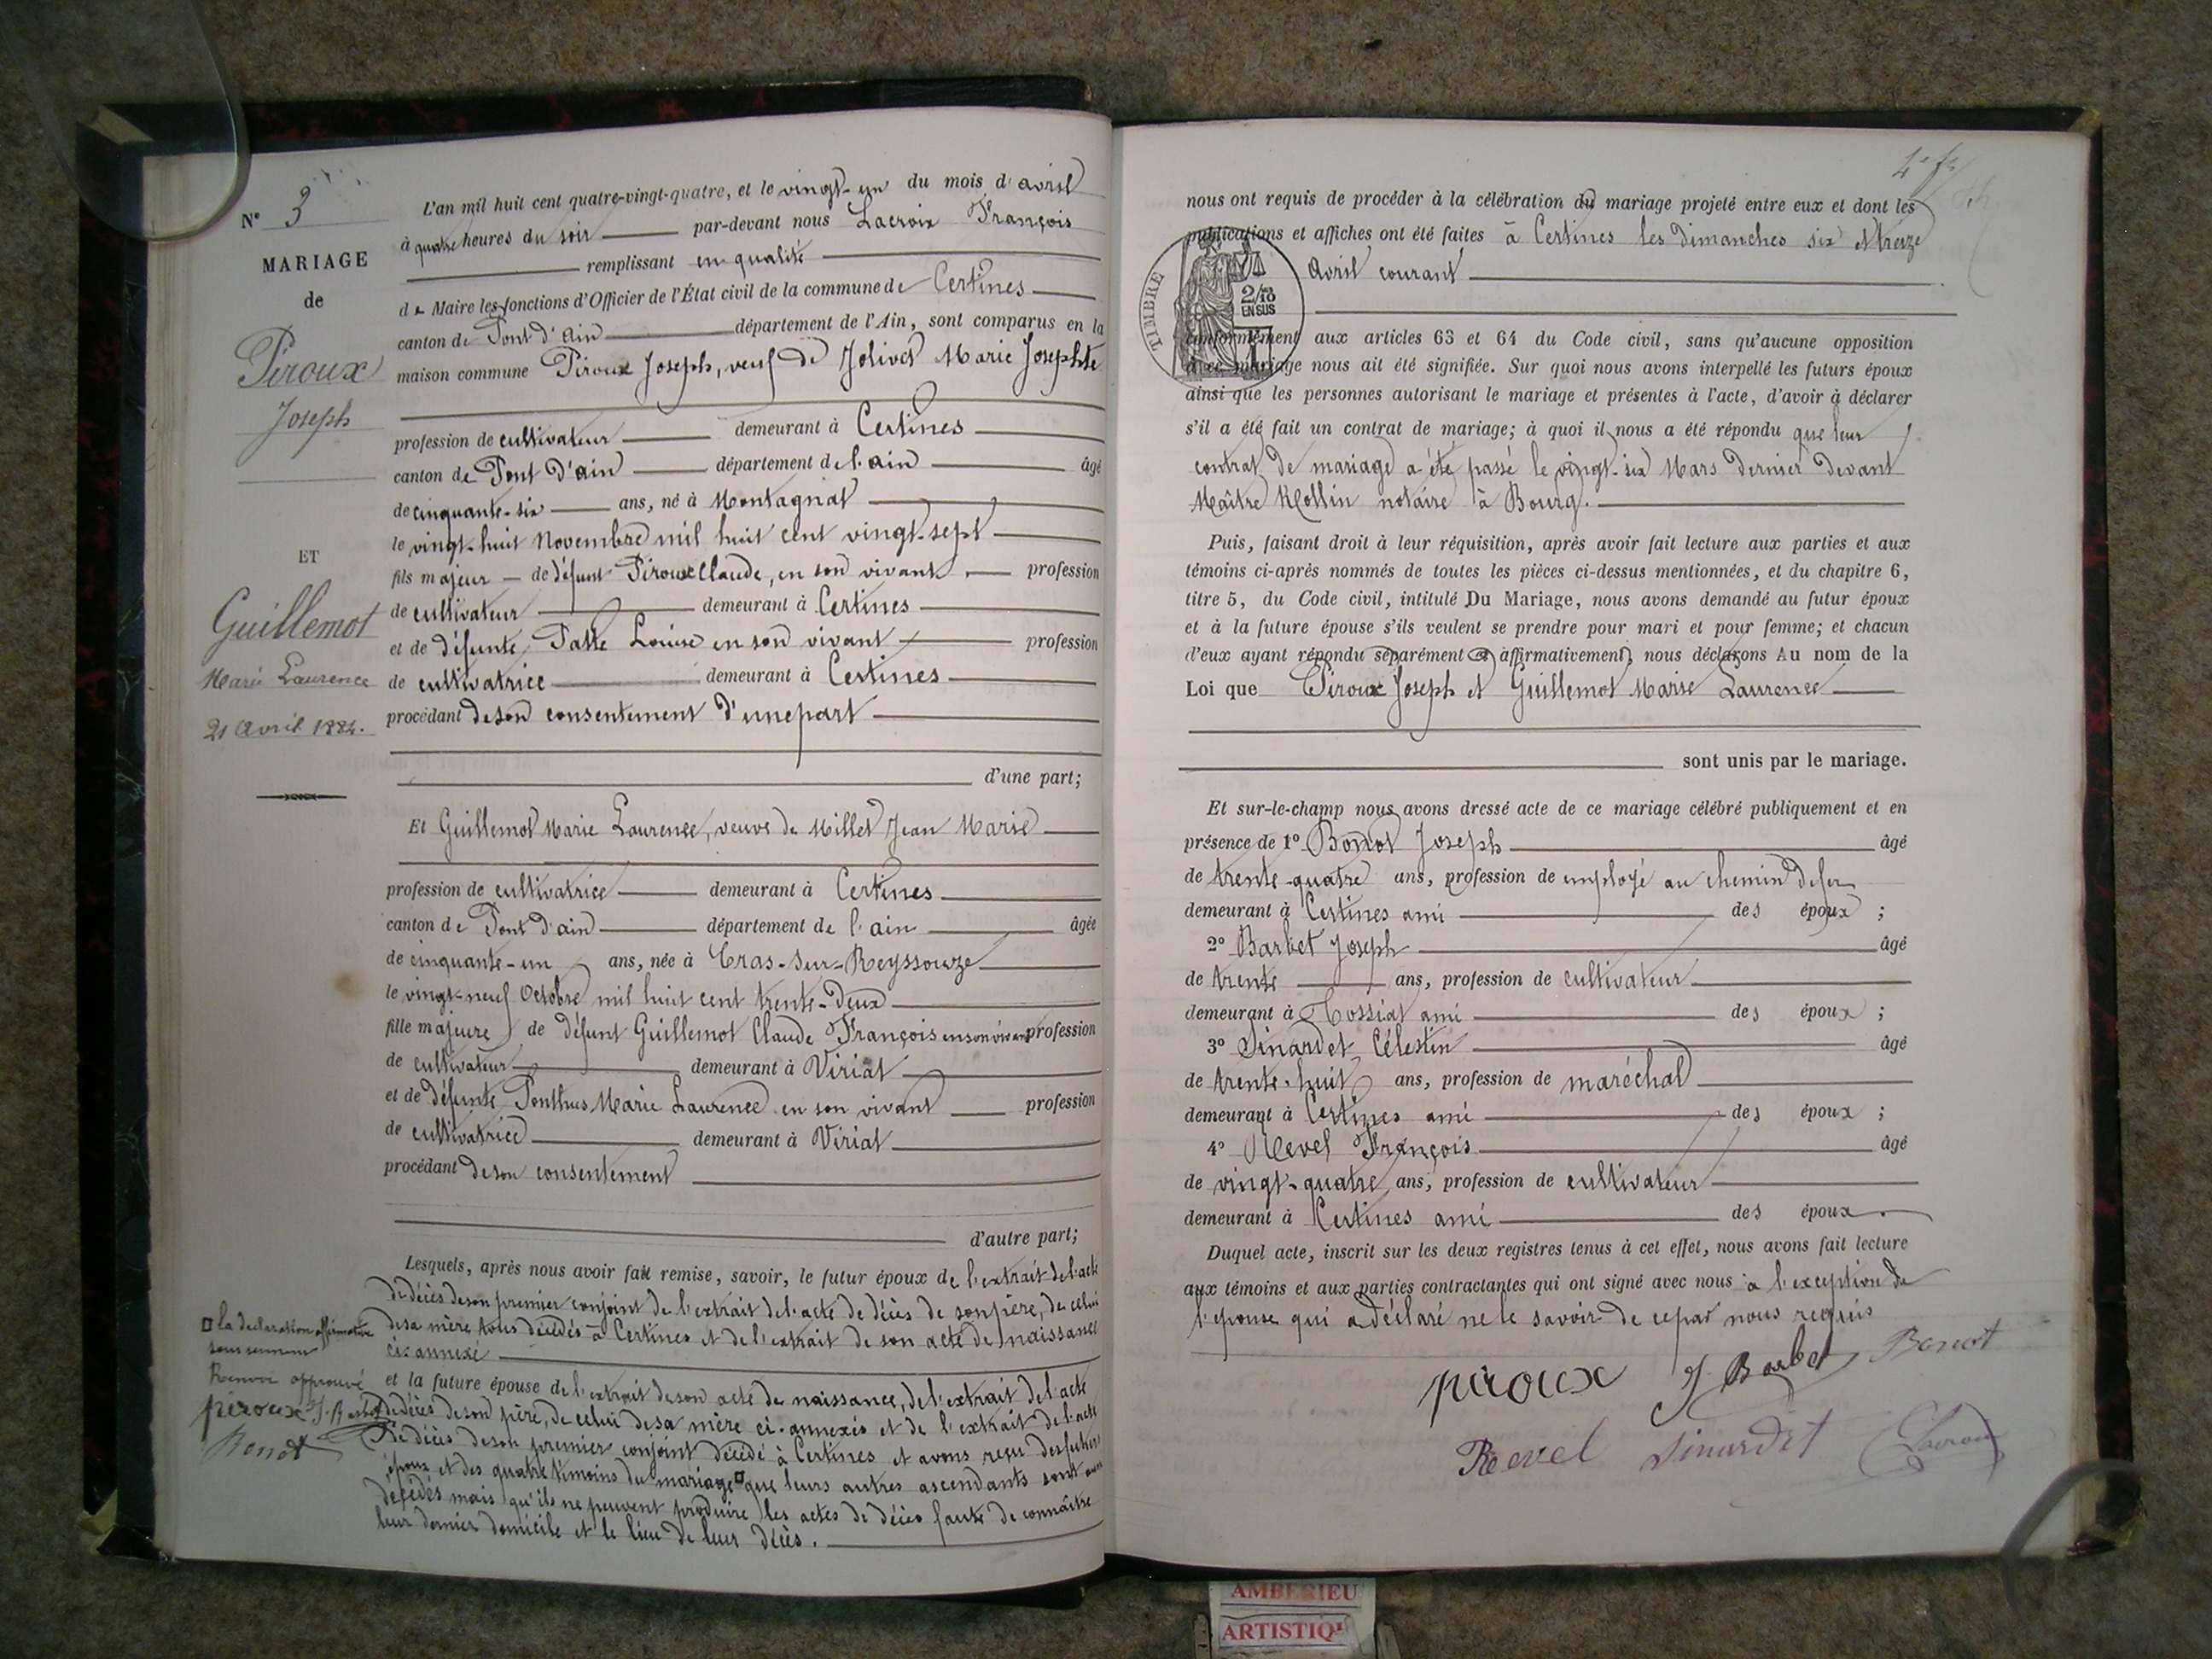 N° 3
MARIAGE
de
Piroux
Joseph
ET
Guillemot
Marie Laurence
21 Avril 1884.
L'an mil huit cent quatre-vingt-quatre, et le vingt-un du mois d'avril
à quatre heures du soir par-devant nous Lacroix François
remplissant en qualité
de Maire les fonctions d'Officier de l'État civil de la commune de Certines
canton de Pont d'Ain département de l'Ain, sont comparus en la
maison commune Piroux Joseph, veuf de Jolivet Marie Josephte
profession de cultivateur demeurant à Certines
canton de Pont d'ain département de l'ain âgé
de cinquante-six ans, né à Montagnat
le vingt-huit Novembre mil huit cent vingt-sept
fils majeur de défunt Piroux Claude, en son vivant profession
de cultivateur demeurant à Certines
et de défunte Patte Louise en son vivant profession
de cultivatrice demeurant à Certines
procédant de son consentement d'une part
d'une part;
Et Guillemot Marie Laurence, veuve de Millet Jean Marie
profession de cultivatrice demeurant à Certines
canton de Pont d'ain département de l'ain âgée
de cinquante-un ans, née à Cras-sur-Reyssouze
le vingt-neuf Octobre mil huit cent trente-deux
fille majeure de défunt Guillemot Claude François en son vivant profession
de cultivateur demeurant à Viriat
et de défunte Ponthus Marie Laurence en son vivant profession
de cultivatrice demeurant à Viriat
procédant de son consentement
d'autre part;
Lesquels, après nous avoir fait remise, savoir, le futur époux de l'extrait de l'acte
de décès de son premier conjoint de l'extrait de l'acte de décès de son père, de celui
de sa mère tous décédés à Certines et de l'extrait de son acte de naissance
ci-annexé
et la future épouse de l'extrait de son acte de naissance, de l'extrait de l'acte
de décès de son père, de celui de sa mère ci-annexés et de l'extrait de l'acte
de décès de son premier conjoint décédé à Certines et avons reçu des futurs
époux et des quatre témoins du mariage que leurs autres ascendants sont
décédés mais qu'ils ne peuvent produire les actes de décès faute de connaître
leur dernier domicile et le lieu de leur décès.
la declaration affirmative
sous serment
Renvoi approuvé
piroux J. Barbet
Bonot
nous ont requis de procéder à la célébration du mariage projeté entre eux et dont les
publications et affiches ont été faites à Certines les dimanches six et treize
Avril courant
TIMBRE
2/10
EN SUS
conformément aux articles 63 et 64 du Code civil, sans qu'aucune opposition
à ce mariage nous ait été signifiée. Sur quoi nous avons interpellé les futurs époux
ainsi que les personnes autorisant le mariage et présentes à l'acte, d'avoir à déclarer
s'il a été fait un contrat de mariage; à quoi il nous a été répondu que leur
contrat de mariage a été passé le vingt-six Mars dernier devant
Maître Rollin notaire à Bourg.
Puis, faisant droit à leur réquisition, après avoir fait lecture aux parties et aux
témoins ci-après nommés de toutes les pièces ci-dessus mentionnées, et du chapitre 6,
titre 5, du Code civil, intitulé Du Mariage, nous avons demandé au futur époux
et à la future épouse s'ils veulent se prendre pour mari et pour femme; et chacun
d'eux ayant répondu séparément et affirmativement, nous déclarons Au nom de la
Loi que Piroux Joseph et Guillemot Marie Laurence
sont unis par le mariage.
Et sur-le-champ nous avons dressé acte de ce mariage célébré publiquement et en
présence de 1° Bonot Joseph âgé
de trente-quatre ans, profession de employé au chemin de fer
demeurant à Certines ami des époux ;
2° Barbet Joseph âgé
de trente ans, profession de cultivateur
demeurant à Tossiat ami des époux ;
3° Sinardet Célestin âgé
de trente-huit ans, profession de maréchal
demeurant à Certines ami des époux ;
4° Revel François âgé
de vingt-quatre ans, profession de cultivateur
demeurant à Certines ami des époux.
Duquel acte, inscrit sur les deux registres tenus à cet effet, nous avons fait lecture
aux témoins et aux parties contractantes qui ont signé avec nous à l'exception de
l'épouse qui a déclaré ne le savoir de ce par nous requis
piroux J. Barbet Bonot
Revel Sinardet Lacroix
AMBERIEU
ARTISTIQ